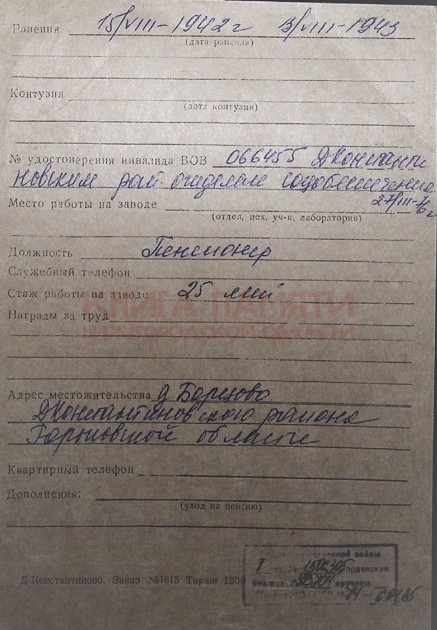 Ранения 15/VIII-1942 г 13/VIII-1943
(дата ранения)
Контузия
(дата контузии)
№ удостоверения инвалида ВОВ 066455 Дконстанти
новским рай. отделом соцобеспечения
Место работы на заводе 27/III-
(отдел, цех, уч-к, лаборатория)
Должность Пенсионер
Служебный телефон
Стаж работы на заводе 25 лет
КНИГА ПАМЯТИ
Награды за труд
НИЖЕГОРОДСКОЙ ОБЛАСТИ
Адрес местожительства д Борцово
Дконстантиновского района
Горьковской области
Квартирный телефон
Дополнения:
(уход на пенсию)
войны
I
ордена
Д-Константиново. Заказ №1615 Тираж 1500